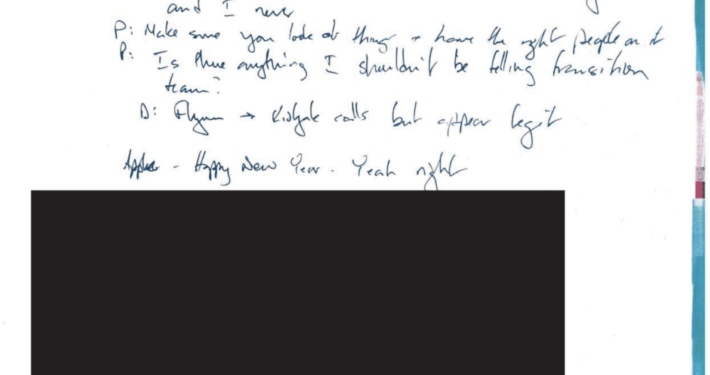 and I never
P: Make sure you look at things + have the right people on it
P: Is there anything I shouldn't be telling transition
team?
D: Flynn → Kislyak calls but appear legit
- Happy New Year. Yeah right